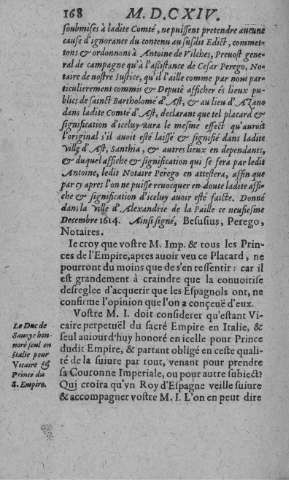 168 M. D. C XIV.
soubmises à ladite Comté, ne puissent pretendre aucune
cause d'ignorance du contenu au susdit Edict, commet-
tons & ordonnons à Antoine de Vilches, Preuost gene-
ral de campagne qu'à l'assistance de Cesar Perego, No-
taire de nostre Iustice, qu'il l'aille comme par nom par-
ticulierement commis & Deputé afficher és lieux pu-
blics de sainct Bartholomé d'Ast, & au lieu d'Azano
dans ladite Comté d'Ast, declarant que tel placard &
signification d'iceluy aura le mesme effect qu'auroit
l'original s'il auoit esté laissé & signifié dans ladite
ville d'Ast, Santhia, & autres lieux en dependants,
& duquel affiche & signification qui se fera par ledit
Antoine, ledit Notaire Perego en attestera, affin que
par cy apres l'on ne puisse reuocquer en doute ladite affi-
che & signification d'iceluy auoir esté faicte. Donné
dans la ville d'Alexandrie de la Paille ce neufiesme
Decembre 1614. Ainsi signé, Besusius, Perego,
Notaires.
Ie croy que vostre M. Imp. & tous les Prin-
ces de l'Empire, apres auoir veu ce Placard, ne
pourront du moins que de s'en ressentir: car il
est grandement à craindre que la conuoitise
desreglee d'acquerir que les Espagnols ont, ne
confisme l'opinion que l'on a conçeuë d'eux.
Vostre M. I. doit considerer qu'estant Vi-
caire perpetuel du sacré Empire en Italie, &
seul aujourd'huy honoré en icelle pour Prince
dudit Empire, & partant obligé en ceste quali-
té de la suiure par tout, venant pour prendre
sa Couronne Imperiale, ou pour autre subiect?
Qui croira qu'vn Roy d'Espagne veille suiure
& accompagner vostre M. I. L'on en peut dire
Le Duc de
Sauoye hon-
noré seul en
Italie pour
Vicaire &
Prince du
S. Empire.